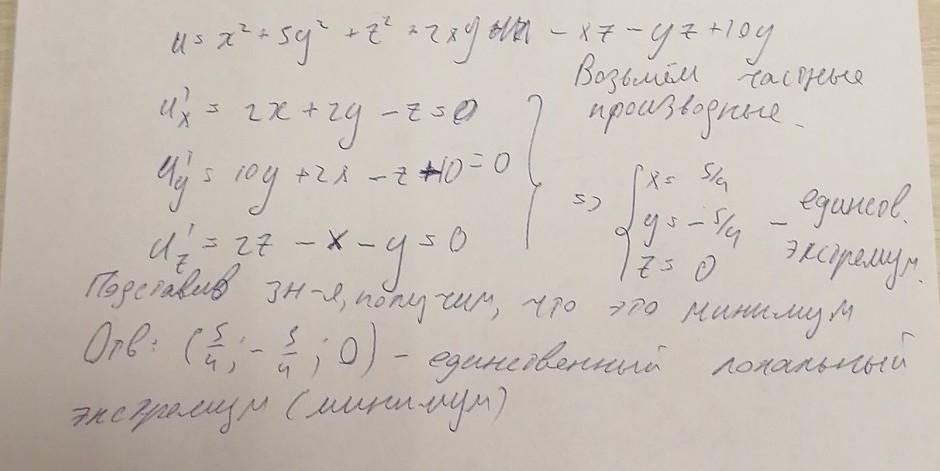 u = x² + 5y² + z² + 2xy - xz - yz + 10y
Возьмём частные
производные.
u'x = 2x + 2y - z = 0
u'y = 10y + 2x - z + 10 = 0
u'z = 2z - x - y = 0
=> { x = 5/4
y = -5/4 - единсв.
z = 0 экстремум.
Подставив зн-я, получим, что это минимум
Отв: (5/4; -5/4; 0) - единственный локальный
экстремум (минимум)